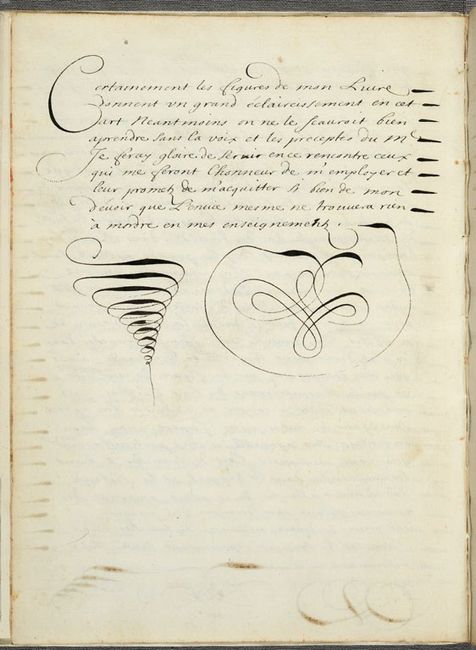 Certainement les figures de mon Livre
donnent un grand eclaircissement en cet
art Neantmoins on ne le sçauroit bien
aprendre sans la voix et les preceptes du Mᵉ
Je feray gloire de servir en ce rencontre ceux
qui me feront l'honneur de m'employer et
leur promets de m'acquitter si bien de mon
devoir que l'envie mesme ne trouvera rien
à mordre en mes enseignements.